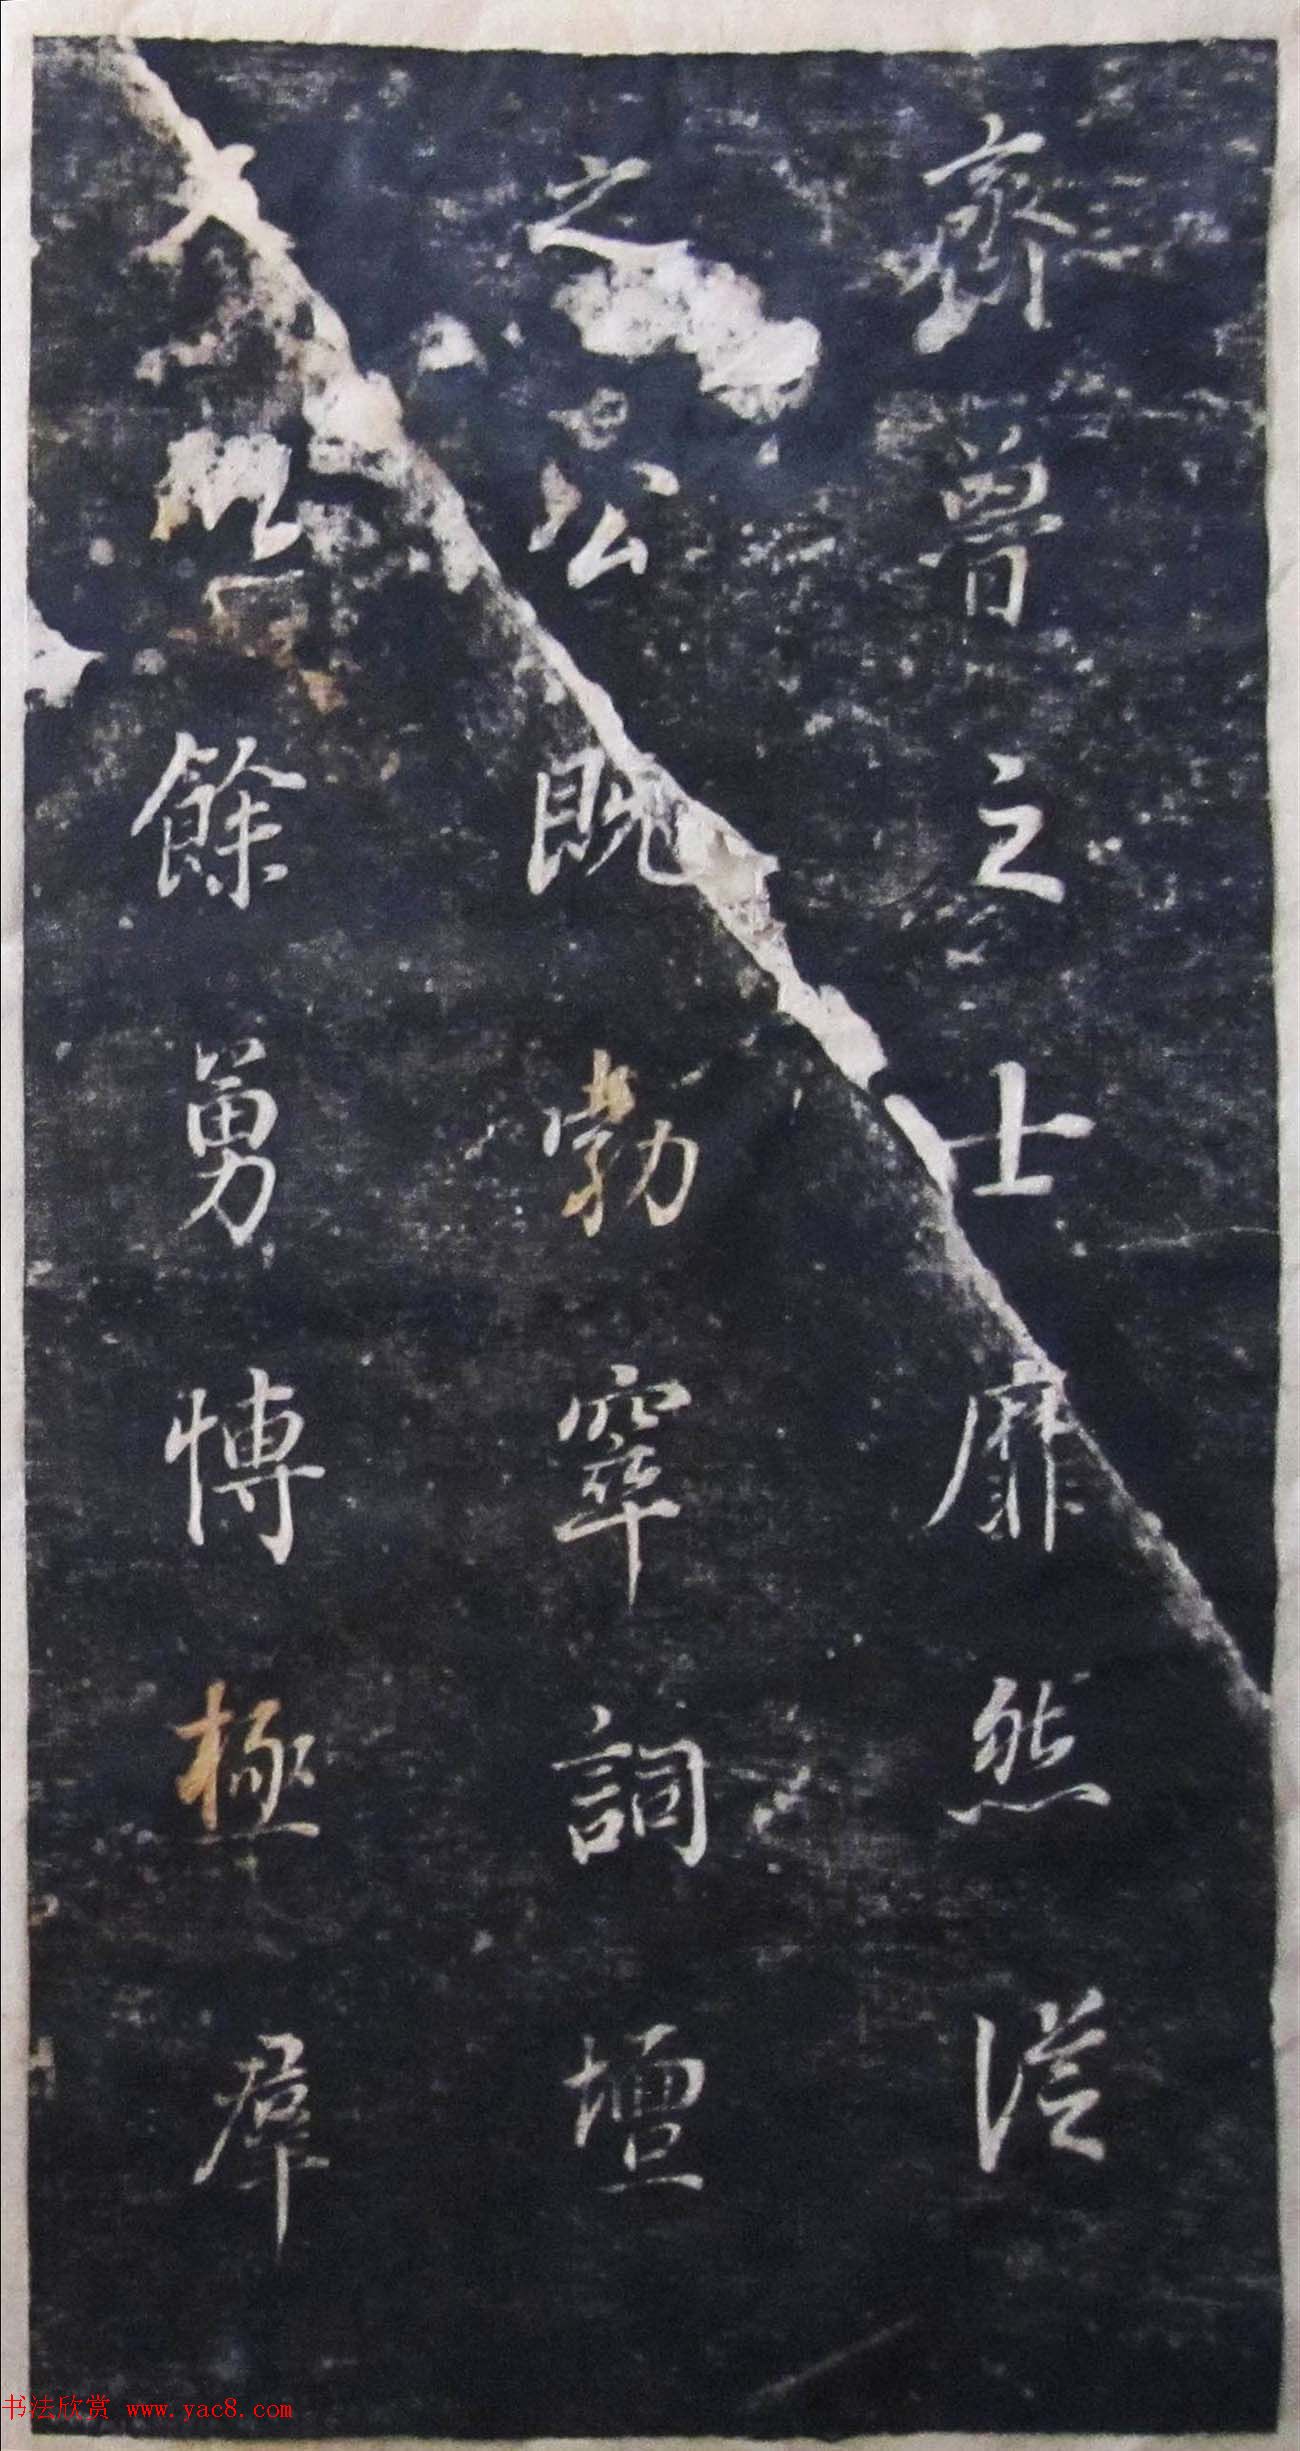 齊魯之士靡然從
之公既勃窣詞壇
又以餘勇博極
书法欣赏 www.yac8.com